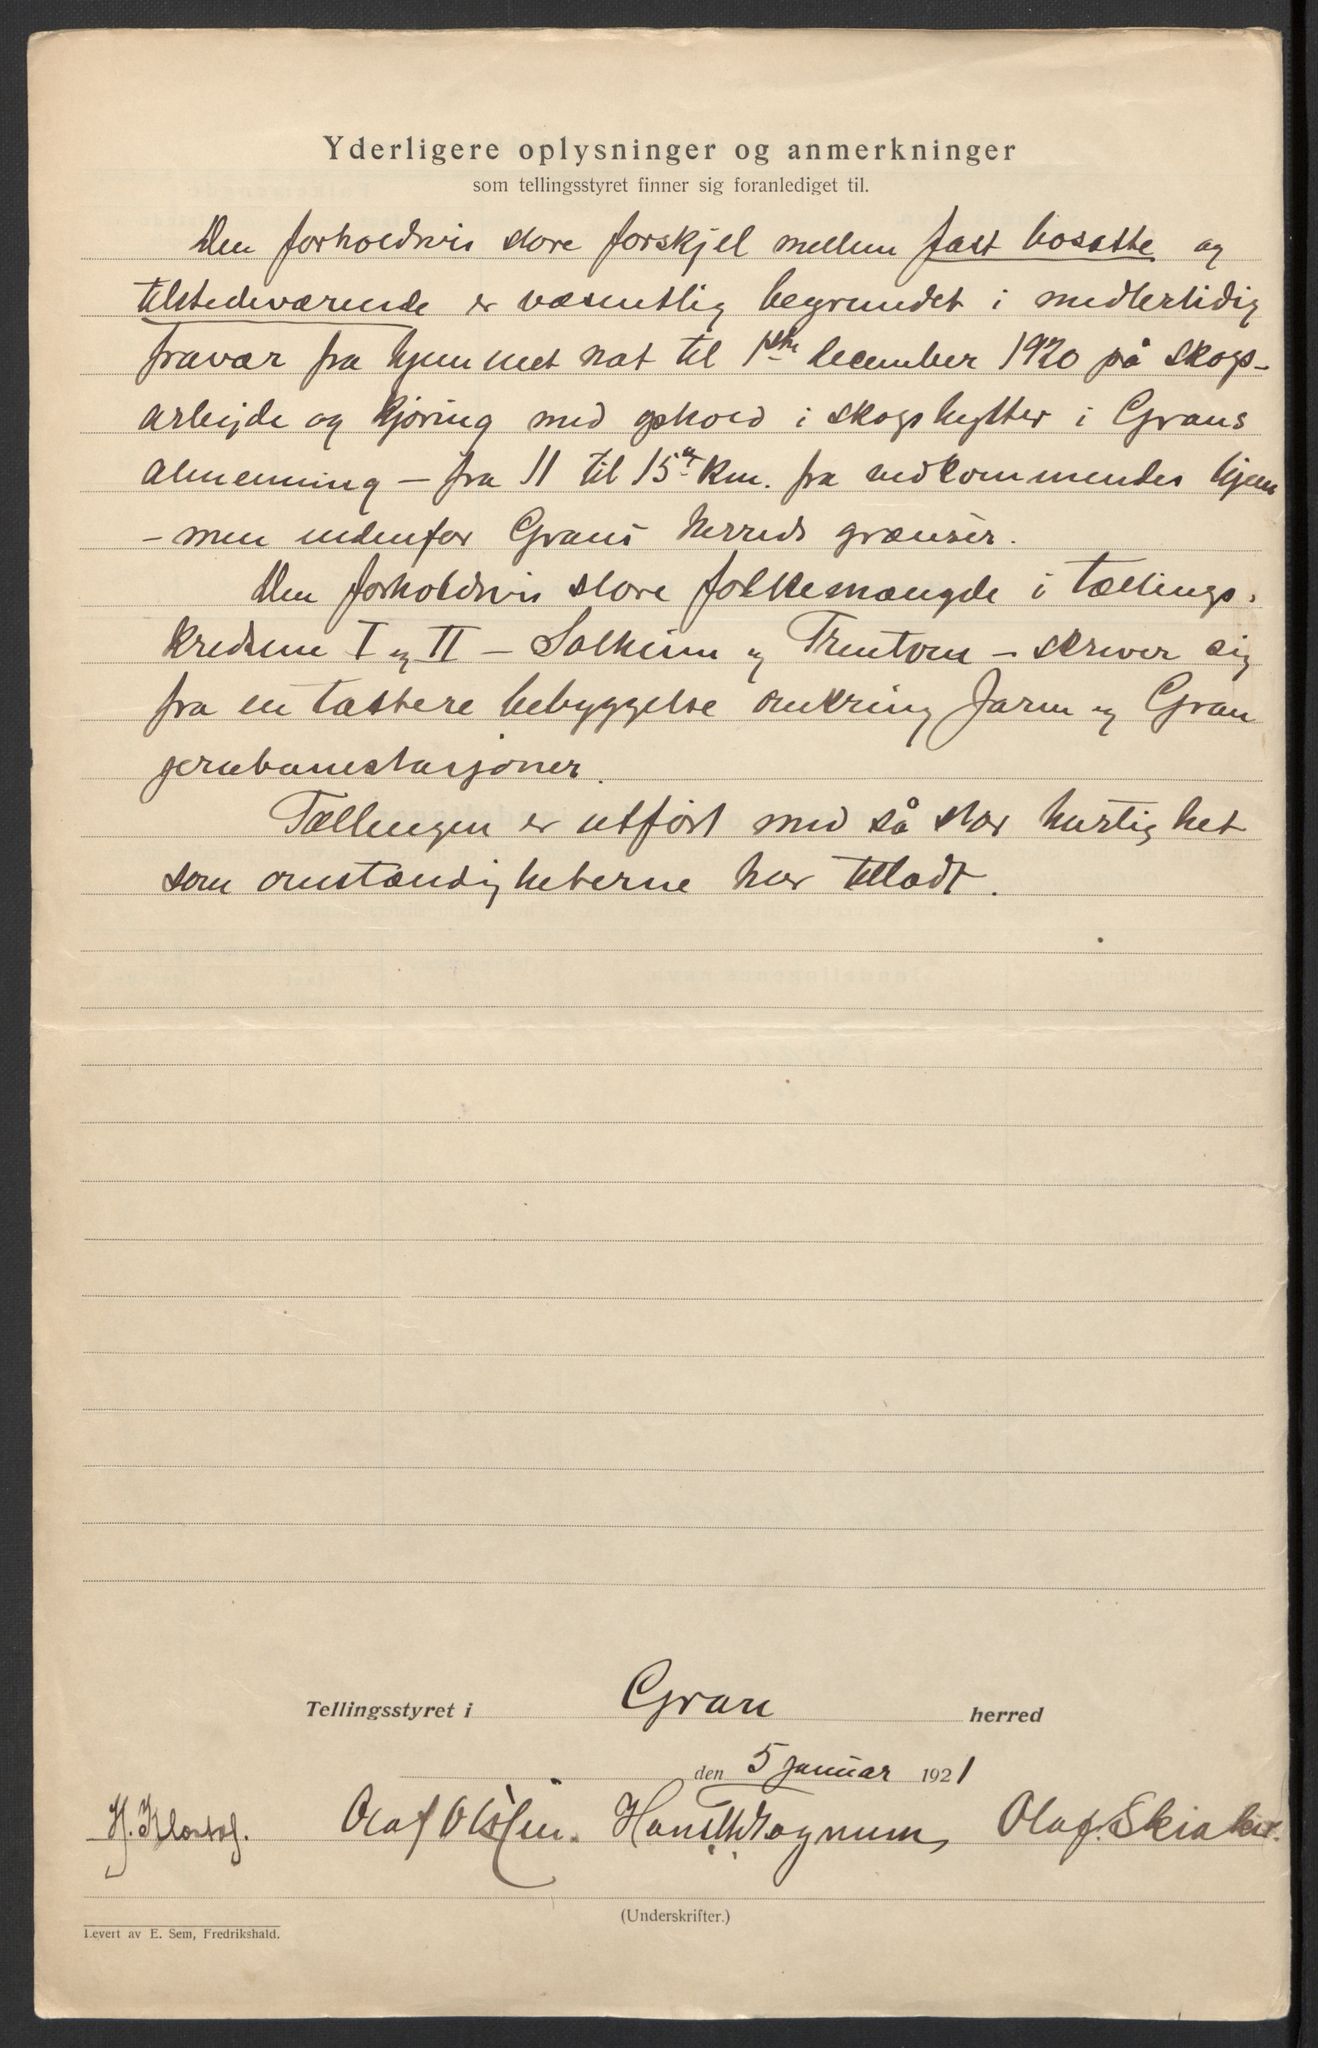 Yderligere oplysninger og anmerkninger
som tellingsstyret finner sig foranlediget til.
Den forholdsvis store forskjel mellem fast bosatte og
tilstedeværende er væsentlig begrundet i midlertidig
fravær fra hjemmet nat til 1ste december 1920 på skogs-
arbejde og kjøring med ophold i skogshytter i Grans
almenning – fra 11 til 15 km. fra vedkommendes hjem
– men indenfor Grans herreds grænser.
Den forholdsvis store folkemængde i tællings-
kredsene I og II – Solheim og Trintom – skriver sig
fra en tættere bebyggelse omkring Jaren og Gran
jernbanestasjoner.
Tællingen er utført med så stor hurtighet
som omstændigheterne har tilladt.
Tellingsstyret i Gran herred
den 5 januar 1921
Olaf Olsen. Hans Olaf Skiaker.
(Underskrifter.)
Levert av E. Sem, Fredrikshald.